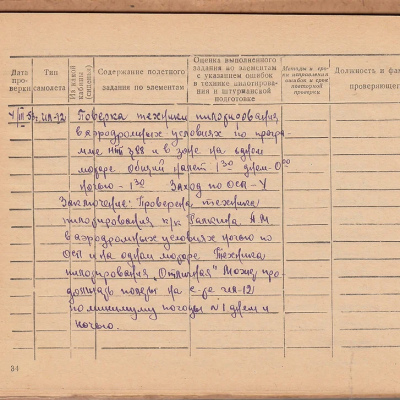 Дата проверки
Тип самолета
Из какой кабины (сиденья)
Содержание полетного задания по элементам
Оценка выполненного задания по элементам с указанием ошибок в технике пилотирования и штурманской подготовке
Методы и сроки исправления ошибок и срок повторной проверки
Должность и фам
проверяющего
ИЛ-12
Поверка техники пилотирования
в аэродромных условиях по програм-
ме и в зоне на одном
моторе Общий налет 1 30 днем-0 00
ночью - 1 30 Заход по ОСП - У
Заключение: Проверена техника
пилотирования к/к А.М
в аэродромных условиях ночью по
ОСП и на одном моторе Техника
пилотирования „Отличная" Может про-
должать полеты на с-те ИЛ-12
по минимуму погоды №1 днем и
ночью.
34